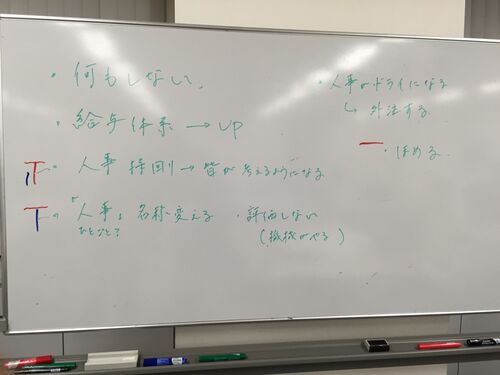 ・何もしないで。
・給与体系 → UP
・人事 持回り → 皆が考えるようになる
・"人事" 名称変える
ひとごと？
・評価しない
(機械がやる)
・人事がドライになる
↳ 外注する
・ほめる